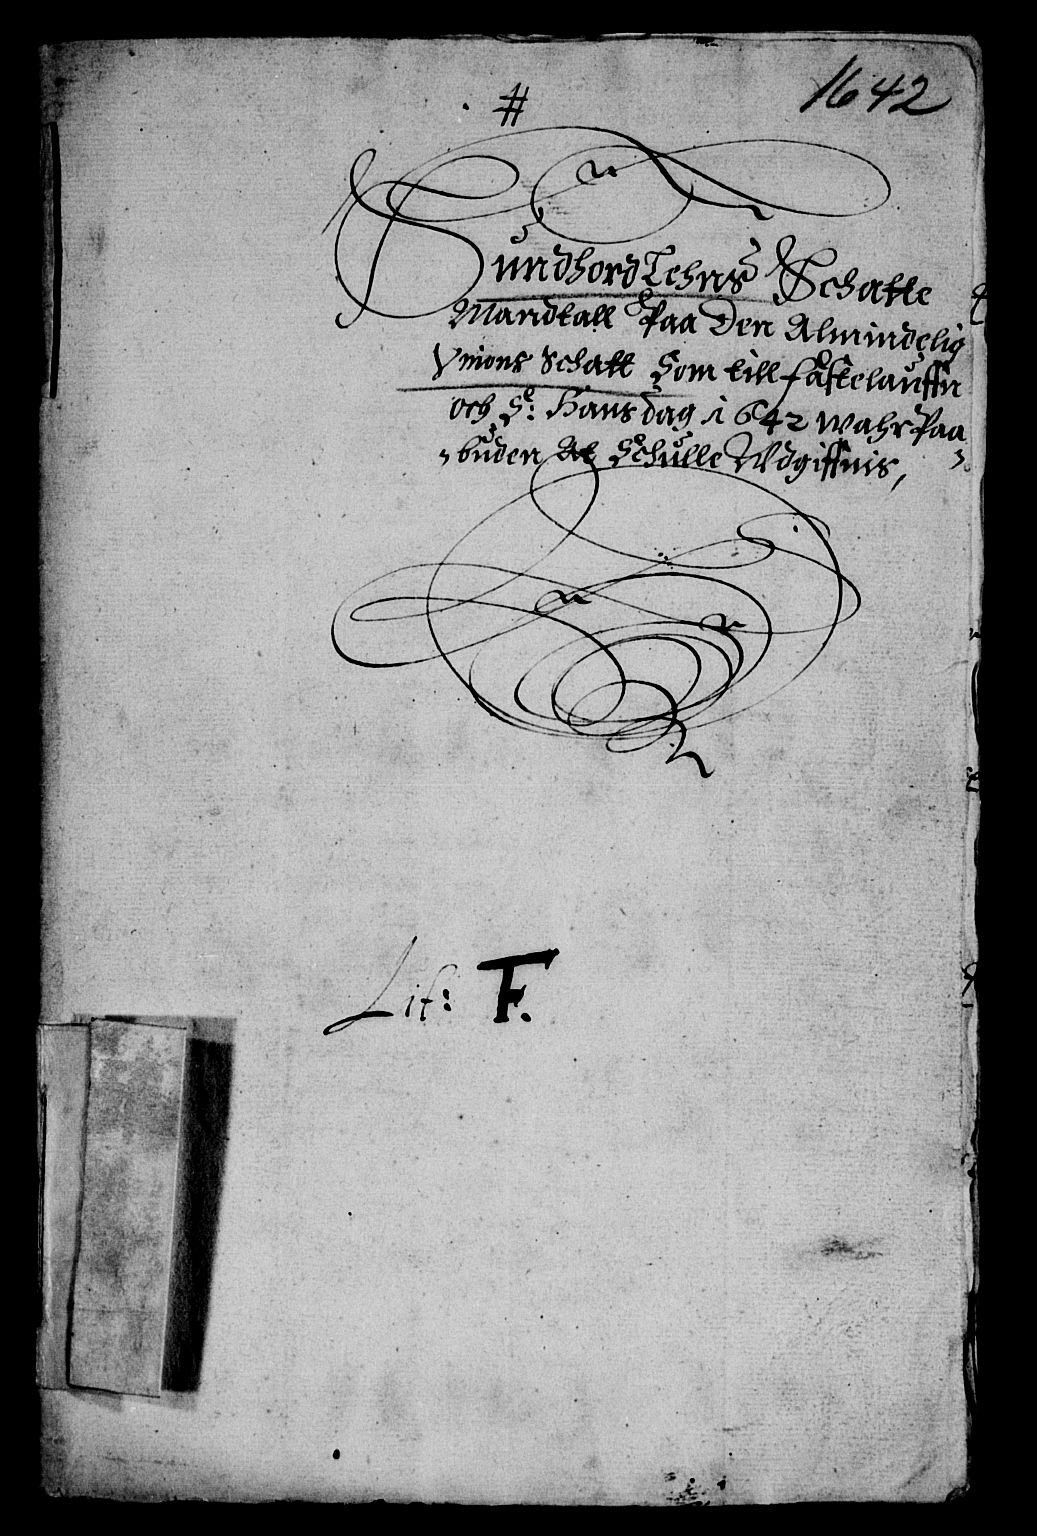 1642
#
Sundhord Lehns Schatte
Mandtall Paa Den Almindelig
Unions Schatt Som till fastelauffn
och St: Hans dag 1642 wahr Paa
buden At Schulle Wdgiffuis,
Lit: F.